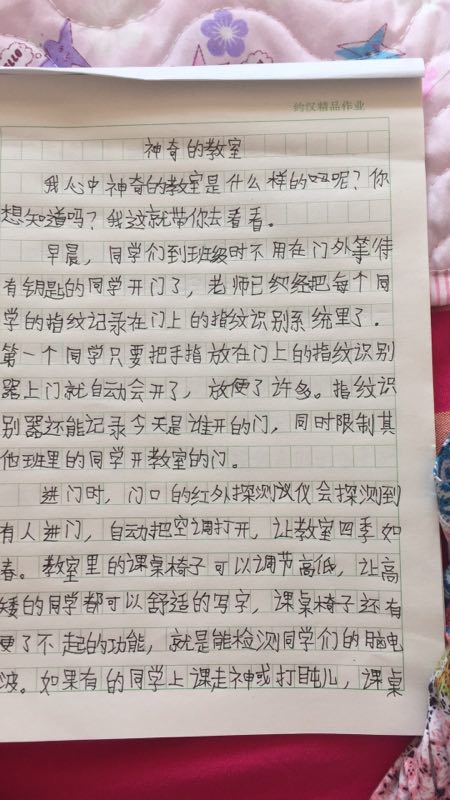 约汉精品作业
神奇的教室
我心中神奇的教室是什么样的吗呢?你
想知道吗?我这就带你去看看。
早晨,同学们到班级时不用在门外等待
有钥匙的同学开门了,老师已经把每个同
学的指纹记录在门上的指纹识别系统里了。
第一个同学只要把手指放在门上的指纹识别
器上门就自动会开了,放便了许多。指纹识
别器还能记录今天是谁开的门,同时限制其
他班里的同学开教室的门。
进门时,门口的红外探测议仪会探测到
有人进门,自动把空调打开,让教室四季如
春。教室里的课桌椅子可以调节高低,让高
矮的同学都可以舒适的写字,课桌椅子还有
更了不起的功能,就是能检测同学们的脑电
波。如果有的同学上课走神或打盹儿,课桌